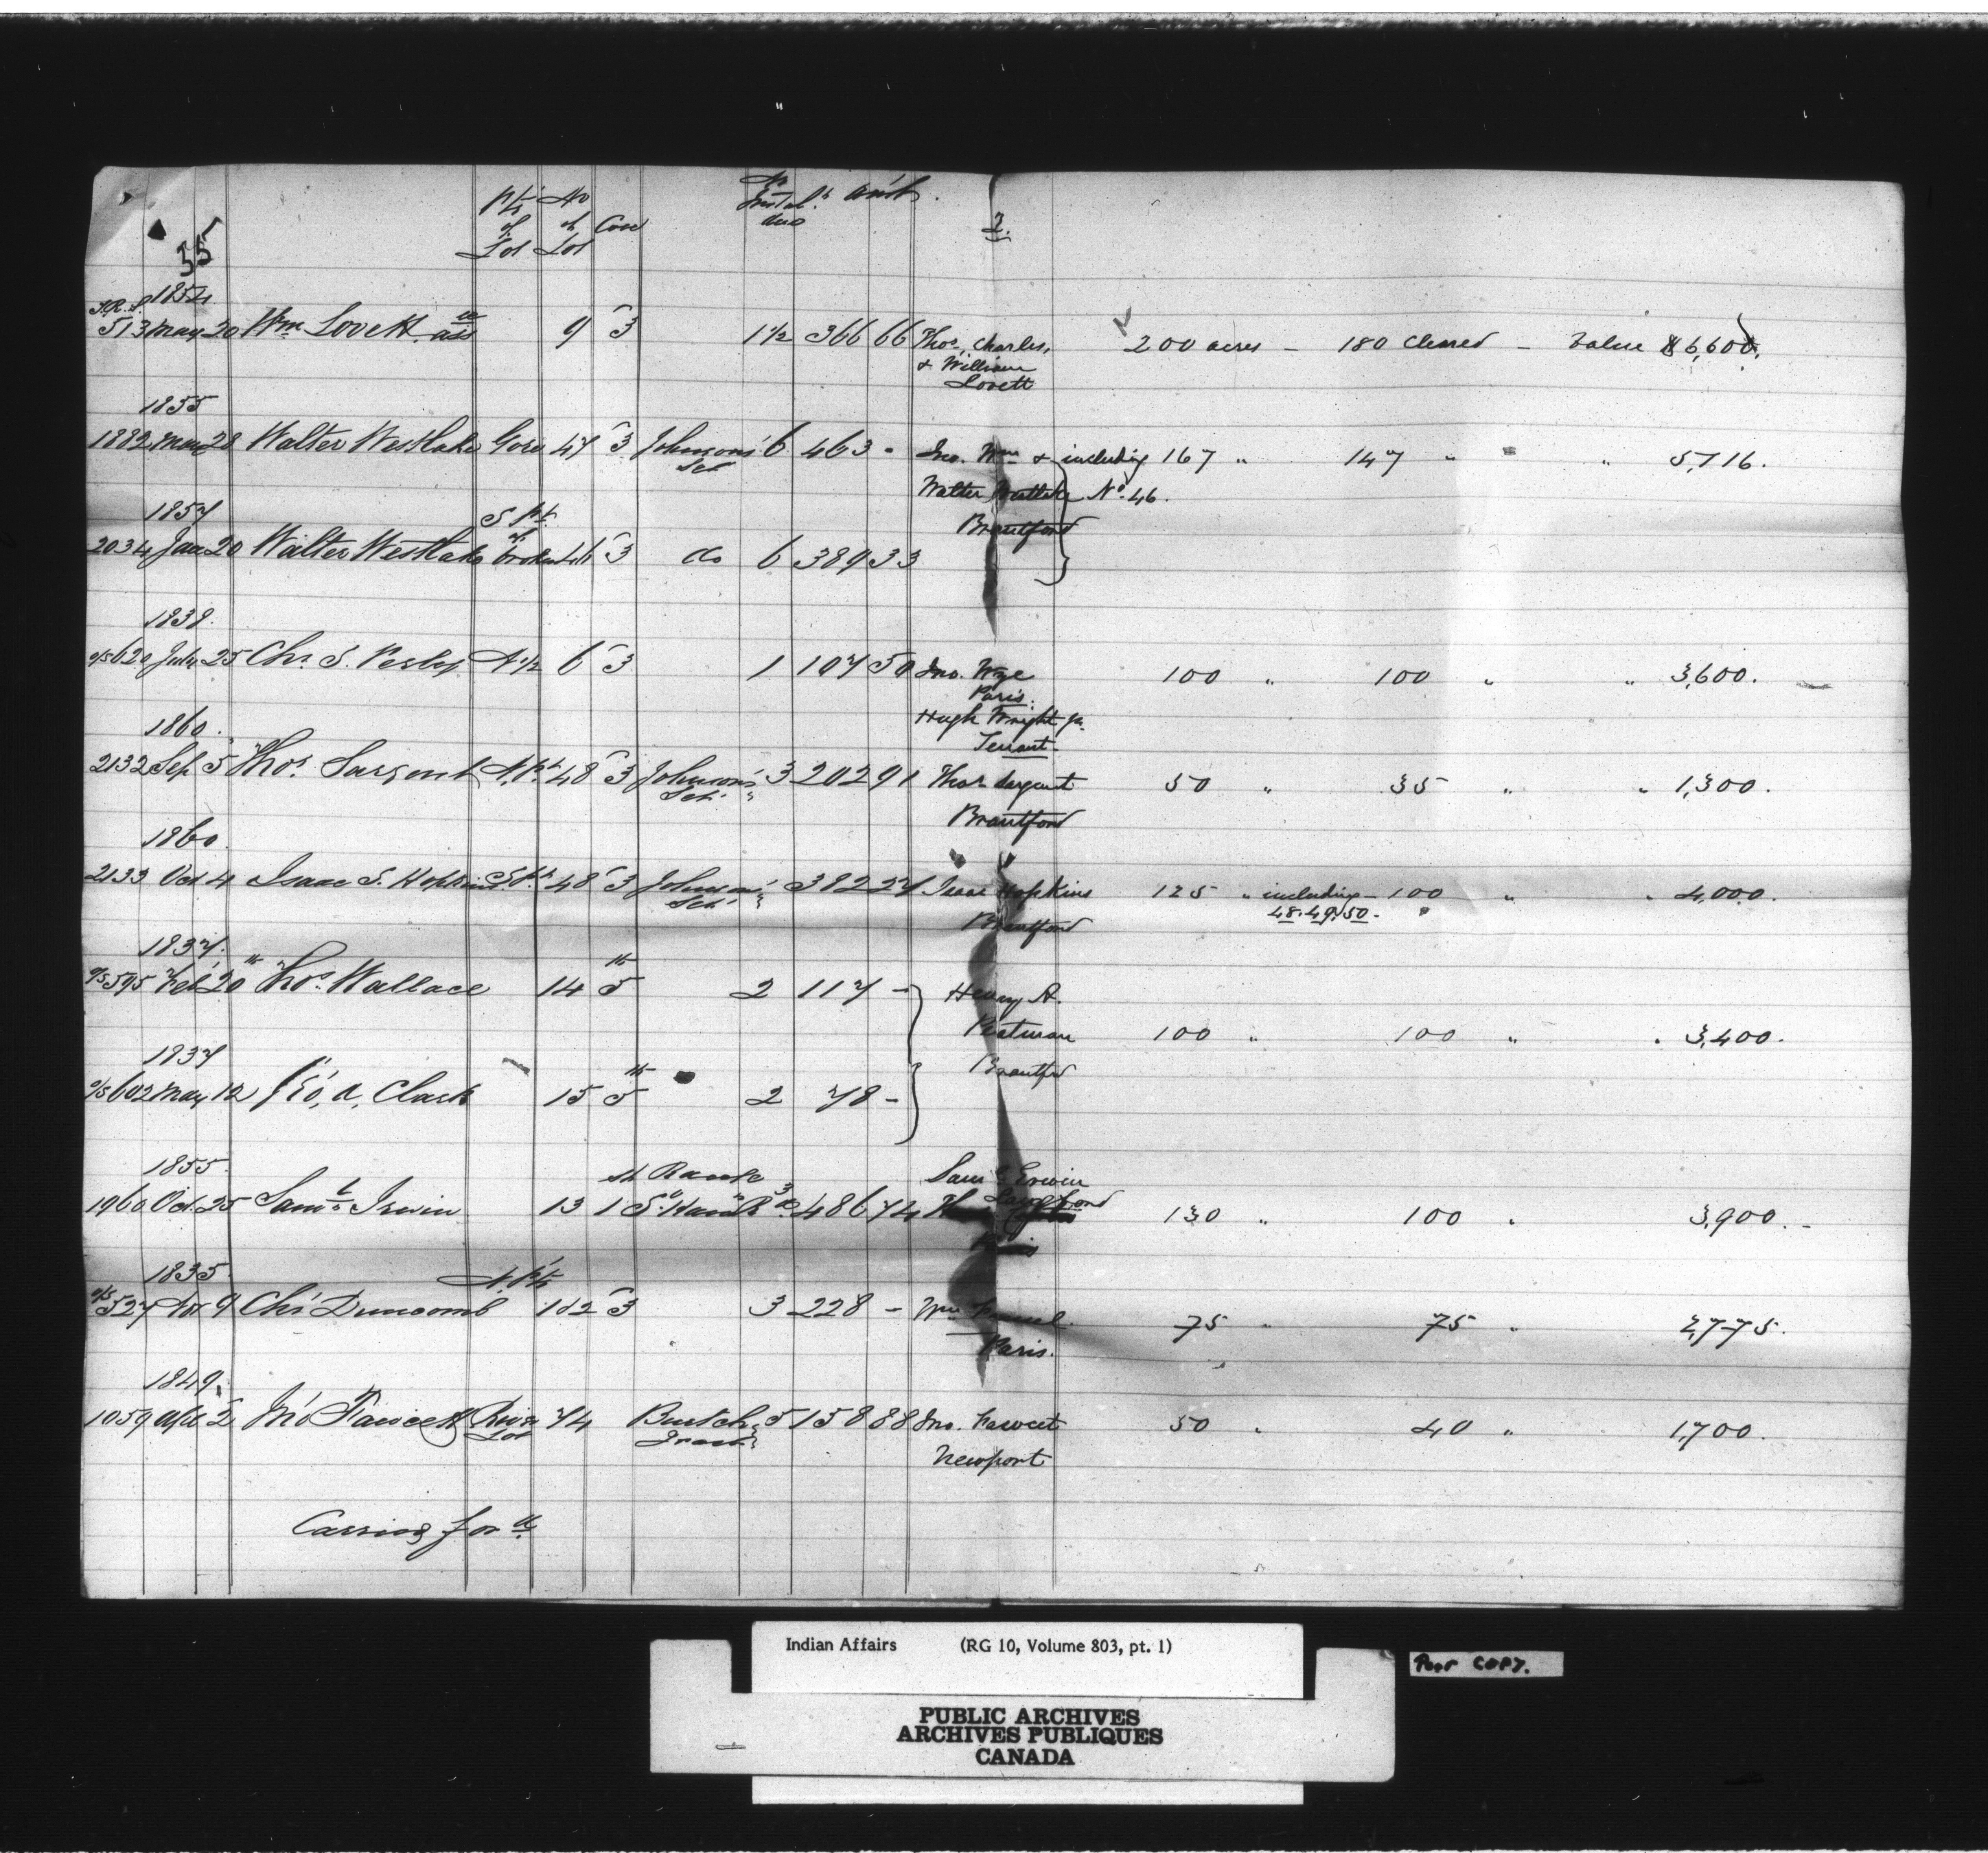 35
pt of Lot No of Lot Con No Instal.ts due Am't. 2.
1854
T.R.S. 513 May 20 Wm Lovett, ass ee 9 3 1½ 366 66 Thos, Charles, 200 acres - 180 cleared - Value $6,600,
& William
Lovett
1855
1882 28 Walter Westlake Gore 47 3 Johnson's Set 6 463 - Jno. Wm & including 167 " 147 " " 5,716.
Walter Westlake No. 46.
1857 S pt.
Brantford
2034 Jan 20 Walter Westlake of broken 46 3 do 6 389 33
1838.
620 July 25 Chs. S. N ½ 6 3 1 107 50 Jno. 100 " 100 " " 3,600.
Paris.
1860. Hugh Wright jr.
Tenant.
2132 Sep 5 Thos. Sargent N. Pt 48 3 Johnson's Set. 3 202 91 Thos Sargent 50 " 35 " " 1,300.
Brantford
1860.
2133 Oct 4 Isaac S. Hopkins S. Pt 48 3 Johnson's Set. 382 27 Isaac Hopkins 125 " including - 100 " " 4,000.
Brantford 48. 49. 50.
1837.
595 Feb 20th Thos. Wallace 14 5th 2 117 - Henry A.
100 " 100 " " 3,400.
1837 Brantford
602 May 12 Geo, A, Clark 15 5th 2 78 -
1855. Range Saml Erwin
1960 Oct. 25 Saml Irwin 13 1 486 74 Langford 130 " 100 " 3,900. -
1835. N. Pt
527 Nov 9 Chs Duncomb 102 3 3 228 - Wm 75 " 75 " 2,775.
Paris.
1849.
1059 Apl 2 Jno Fawcett River Lot 74 Burtch Tract 5 158 88 Jno. Fawcet 50 " 40 " 1,700.
Newport
Carried for d
Indian Affairs (RG 10, Volume 803, pt. 1)
Poor COPY.
PUBLIC ARCHIVES
ARCHIVES PUBLIQUES
CANADA